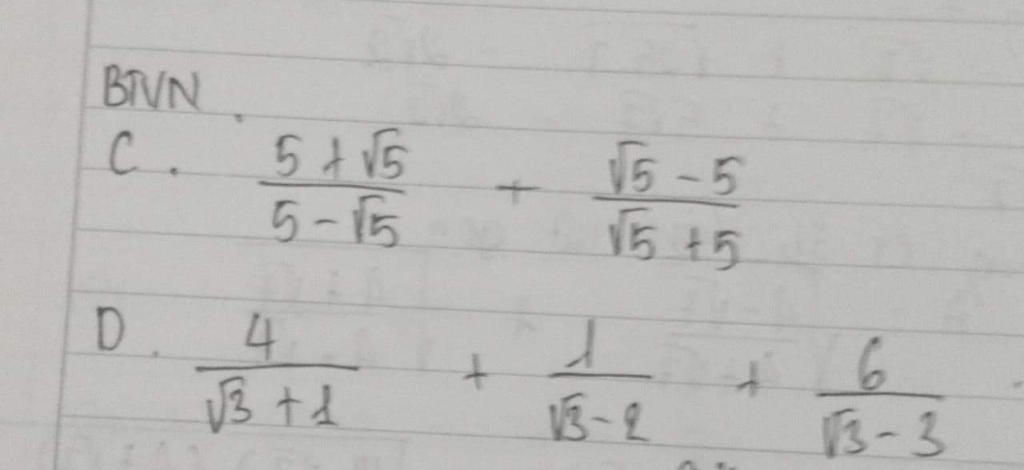 BTVN.
C. (5+√5)/(5-√5) + (√5-5)/(√5+5)
D. 4/(√3+1) + 1/(√3-2) + 6/(√3-3)